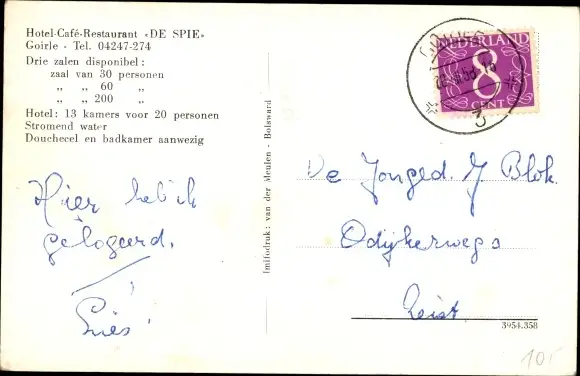 Hotel-Café-Restaurant «DE SPIE»
Goirle - Tel. 04247-274
Drie zalen disponibel :
zaal van 30 personen
„ „ 60 „
„ „ 200 „
Hotel: 13 kamers voor 20 personen
Stromend water
Douchecel en badkamer aanwezig
Hier heb ik
gelogeerd.
Imifodruk: van der Meulen - Bolsward
NEDERLAND
8
CENT
3
De Jonged. J Blok.
Odijkerweg
Zeist.
3954.358
10,-